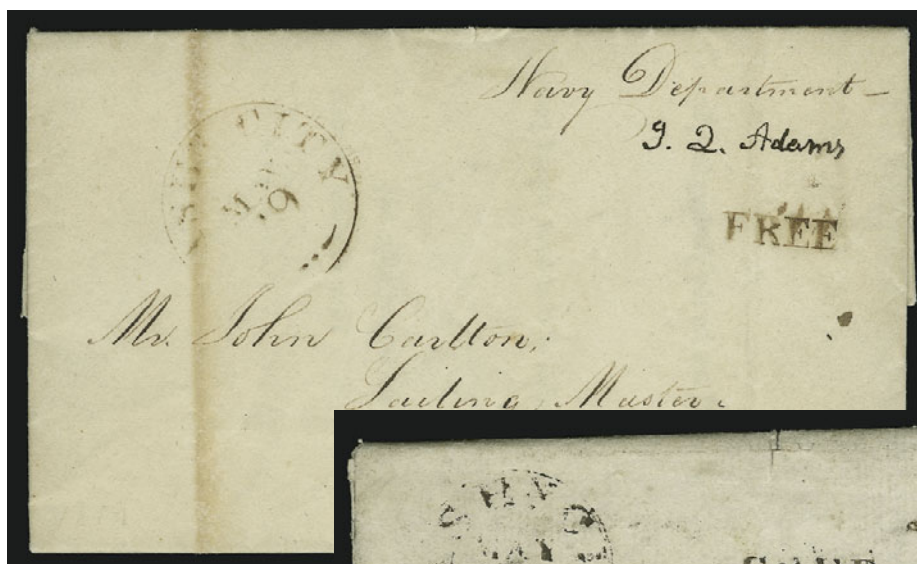 Navy Department –
J. Q. Adams
CITY
MAY
9
FREE
Mr. John Carlton,
Sailing Master.
MAY